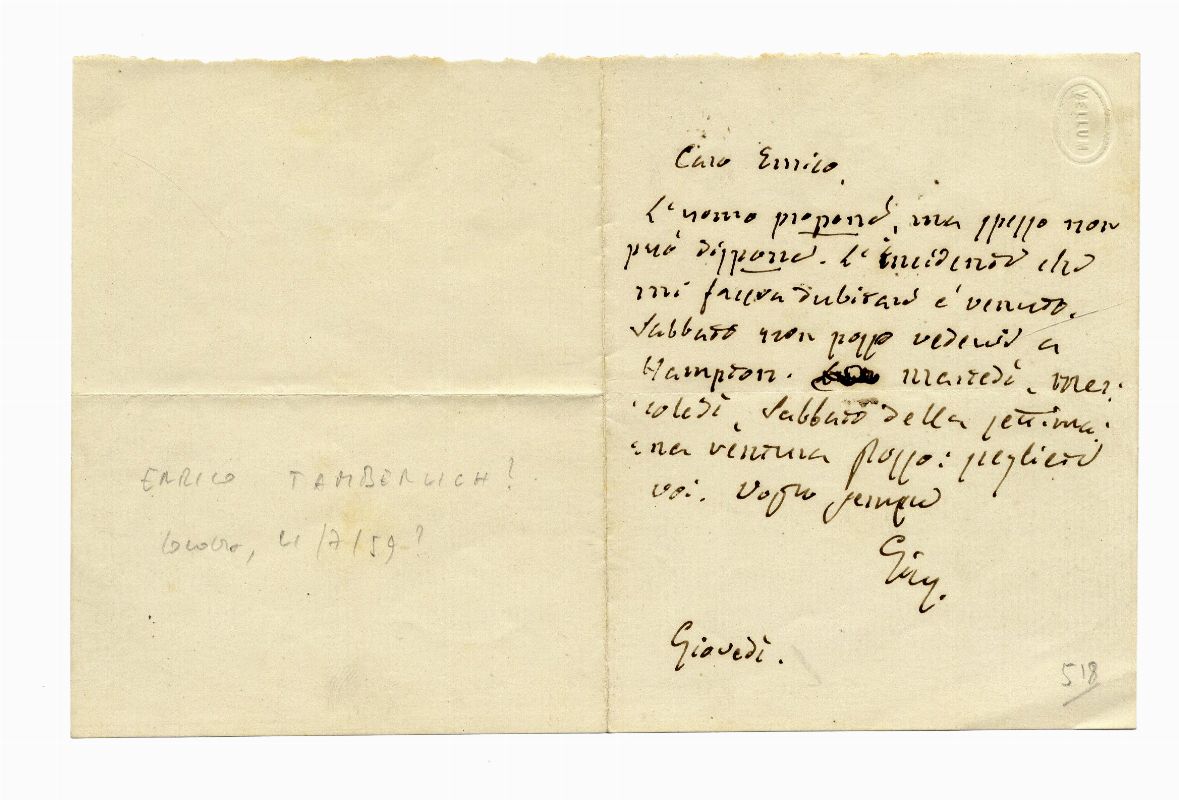 VELLUM
Caro Enrico,
L'uomo propone, ma spesso non
può disporre. L'incidente che
mi faceva dubitare è venuto.
Sabbato non posso vedervi a
Hampton. martedì, mer-
-coledì, Sabbato della settima-
-na ventura posso: scegliete
voi. Vostro sempre
Gius.
Giovedì.
518
ENRICO TAMBERLICH?
/7/59?